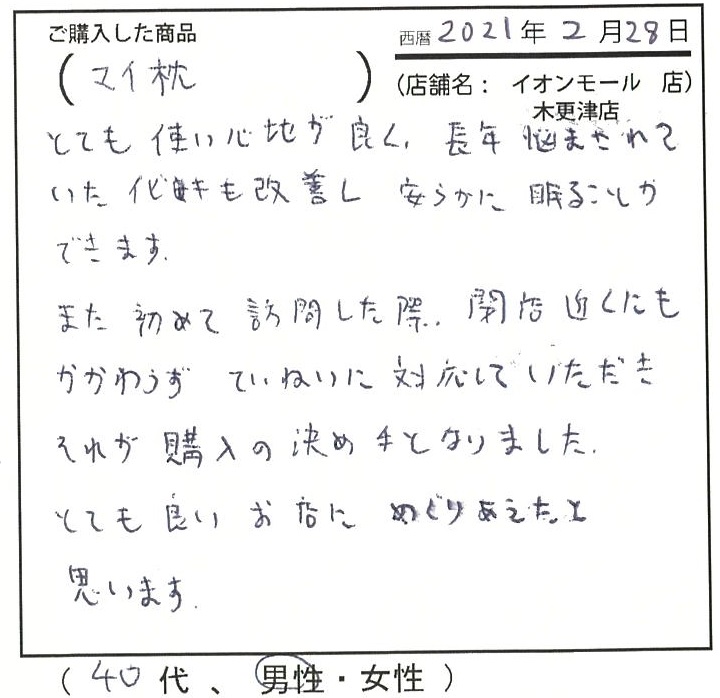 ご購入した商品
西暦 2021年 2月28日
(マイ枕)
(店舗名: イオンモール 店)
木更津店
とても 使い心地が 良く、長年 悩まされて
いた も改善し 安らかに 眠ることが
できます。
また 初めて 訪問した際、閉店 近くにも
かかわらず ていねいに 対応していただき
それが 購入の 決め手となりました。
とても 良い お店に めぐりあえたと
思います。
(40代、男性・女性)